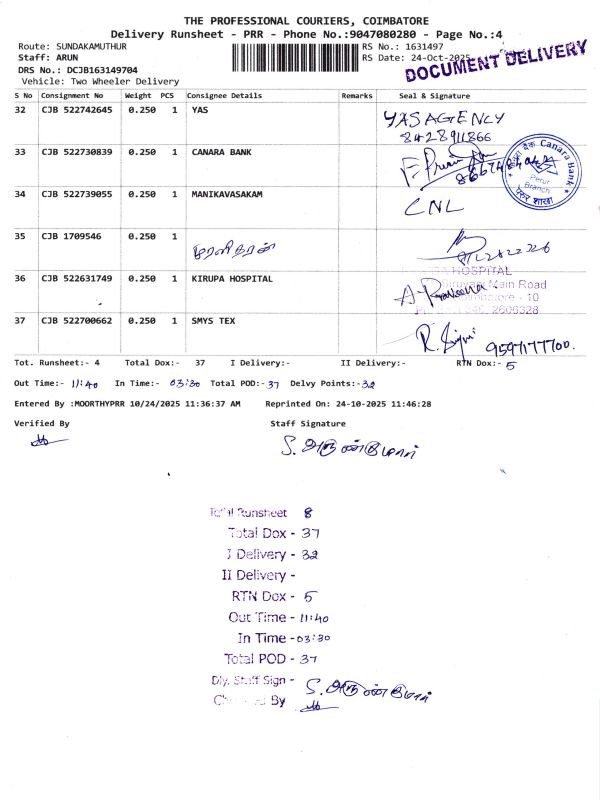 THE PROFESSIONAL COURIERS, COIMBATORE
Delivery Runsheet - PRR - Phone No.:9047080280 - Page No.:4
Route: SUNDAKAMUTHUR RS No.: 1631497
Staff: ARUN RS Date: 24-Oct-2025
DRS No.: DCJB163149704
Vehicle: Two Wheeler Delivery
DOCUMENT DELIVERY
S No Consignment No Weight PCS Consignee Details Remarks Seal & Signature
32 CJB 522742645 0.250 1 YAS YAS AGENCY
8428911866
33 CJB 522730839 0.250 1 CANARA BANK
Canara Bank
Perur
Branch
34 CJB 522739055 0.250 1 MANIKAVASAKAM CNL
35 CJB 1709546 0.250 1 முரளிதரன்
36 CJB 522631749 0.250 1 KIRUPA HOSPITAL HOSPITAL
Main Road
- 10
2606328
37 CJB 522700662 0.250 1 SMYS TEX
Tot. Runsheet:- 4 Total Dox:- 37 I Delivery:- II Delivery:- RTN Dox:- 5
Out Time:- 11:40 In Time:- 03:30 Total POD:- 37 Delvy Points:- 32
Entered By :MOORTHYPRR 10/24/2025 11:36:37 AM Reprinted On: 24-10-2025 11:46:28
Verified By Staff Signature
Total Runsheet 8
Total Dox - 37
I Delivery - 32
II Delivery -
RTN Dox - 5
Out Time - 11:40
In Time - 03:30
Total POD - 37
Dly. Staff Sign -
By